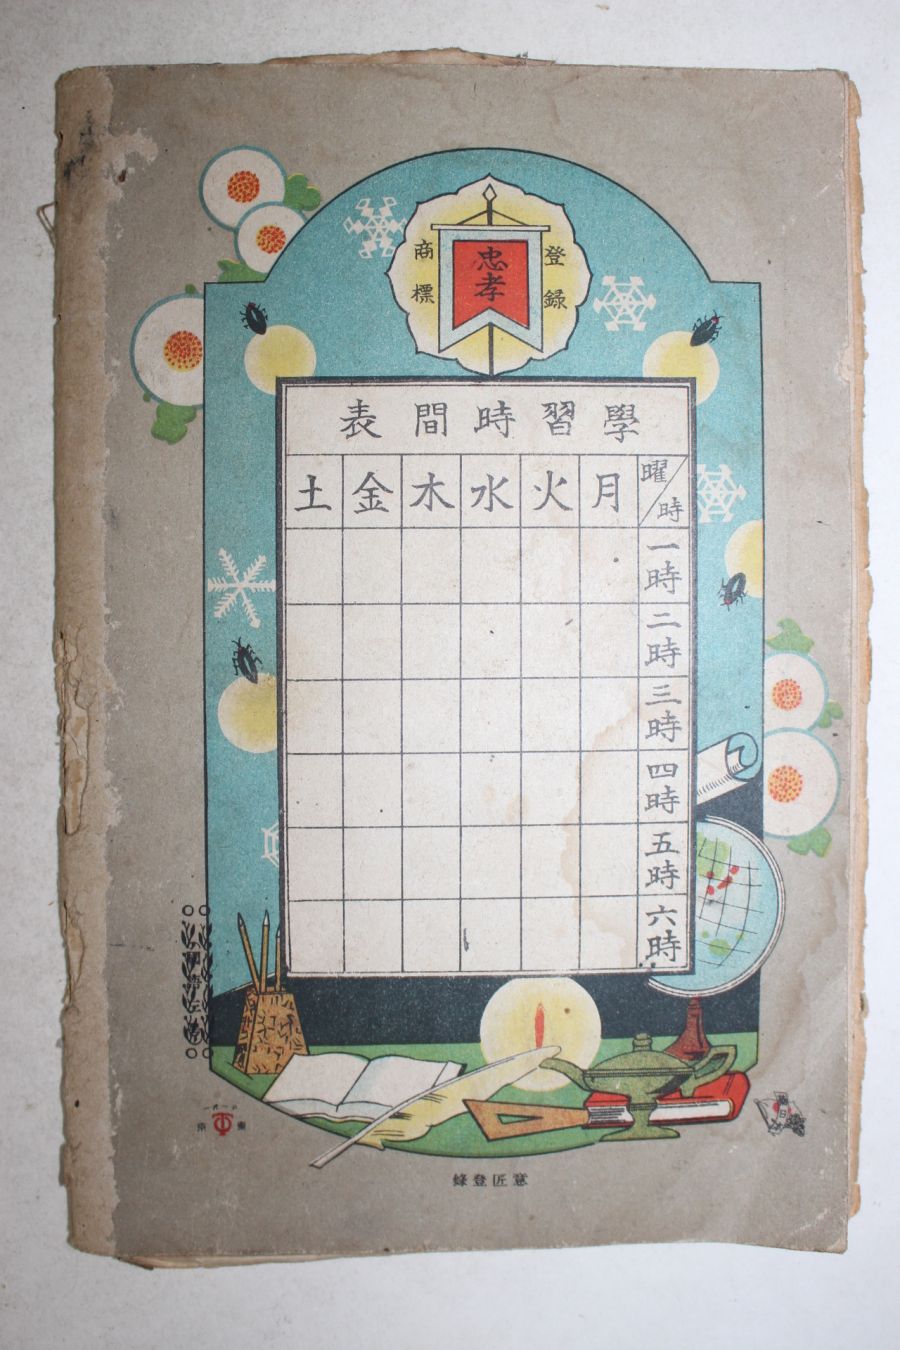 登録
商標
忠孝
學習時間表
曜/時 月 火 水 木 金 土
一時
二時
三時
四時
五時
六時
東京
意匠登録